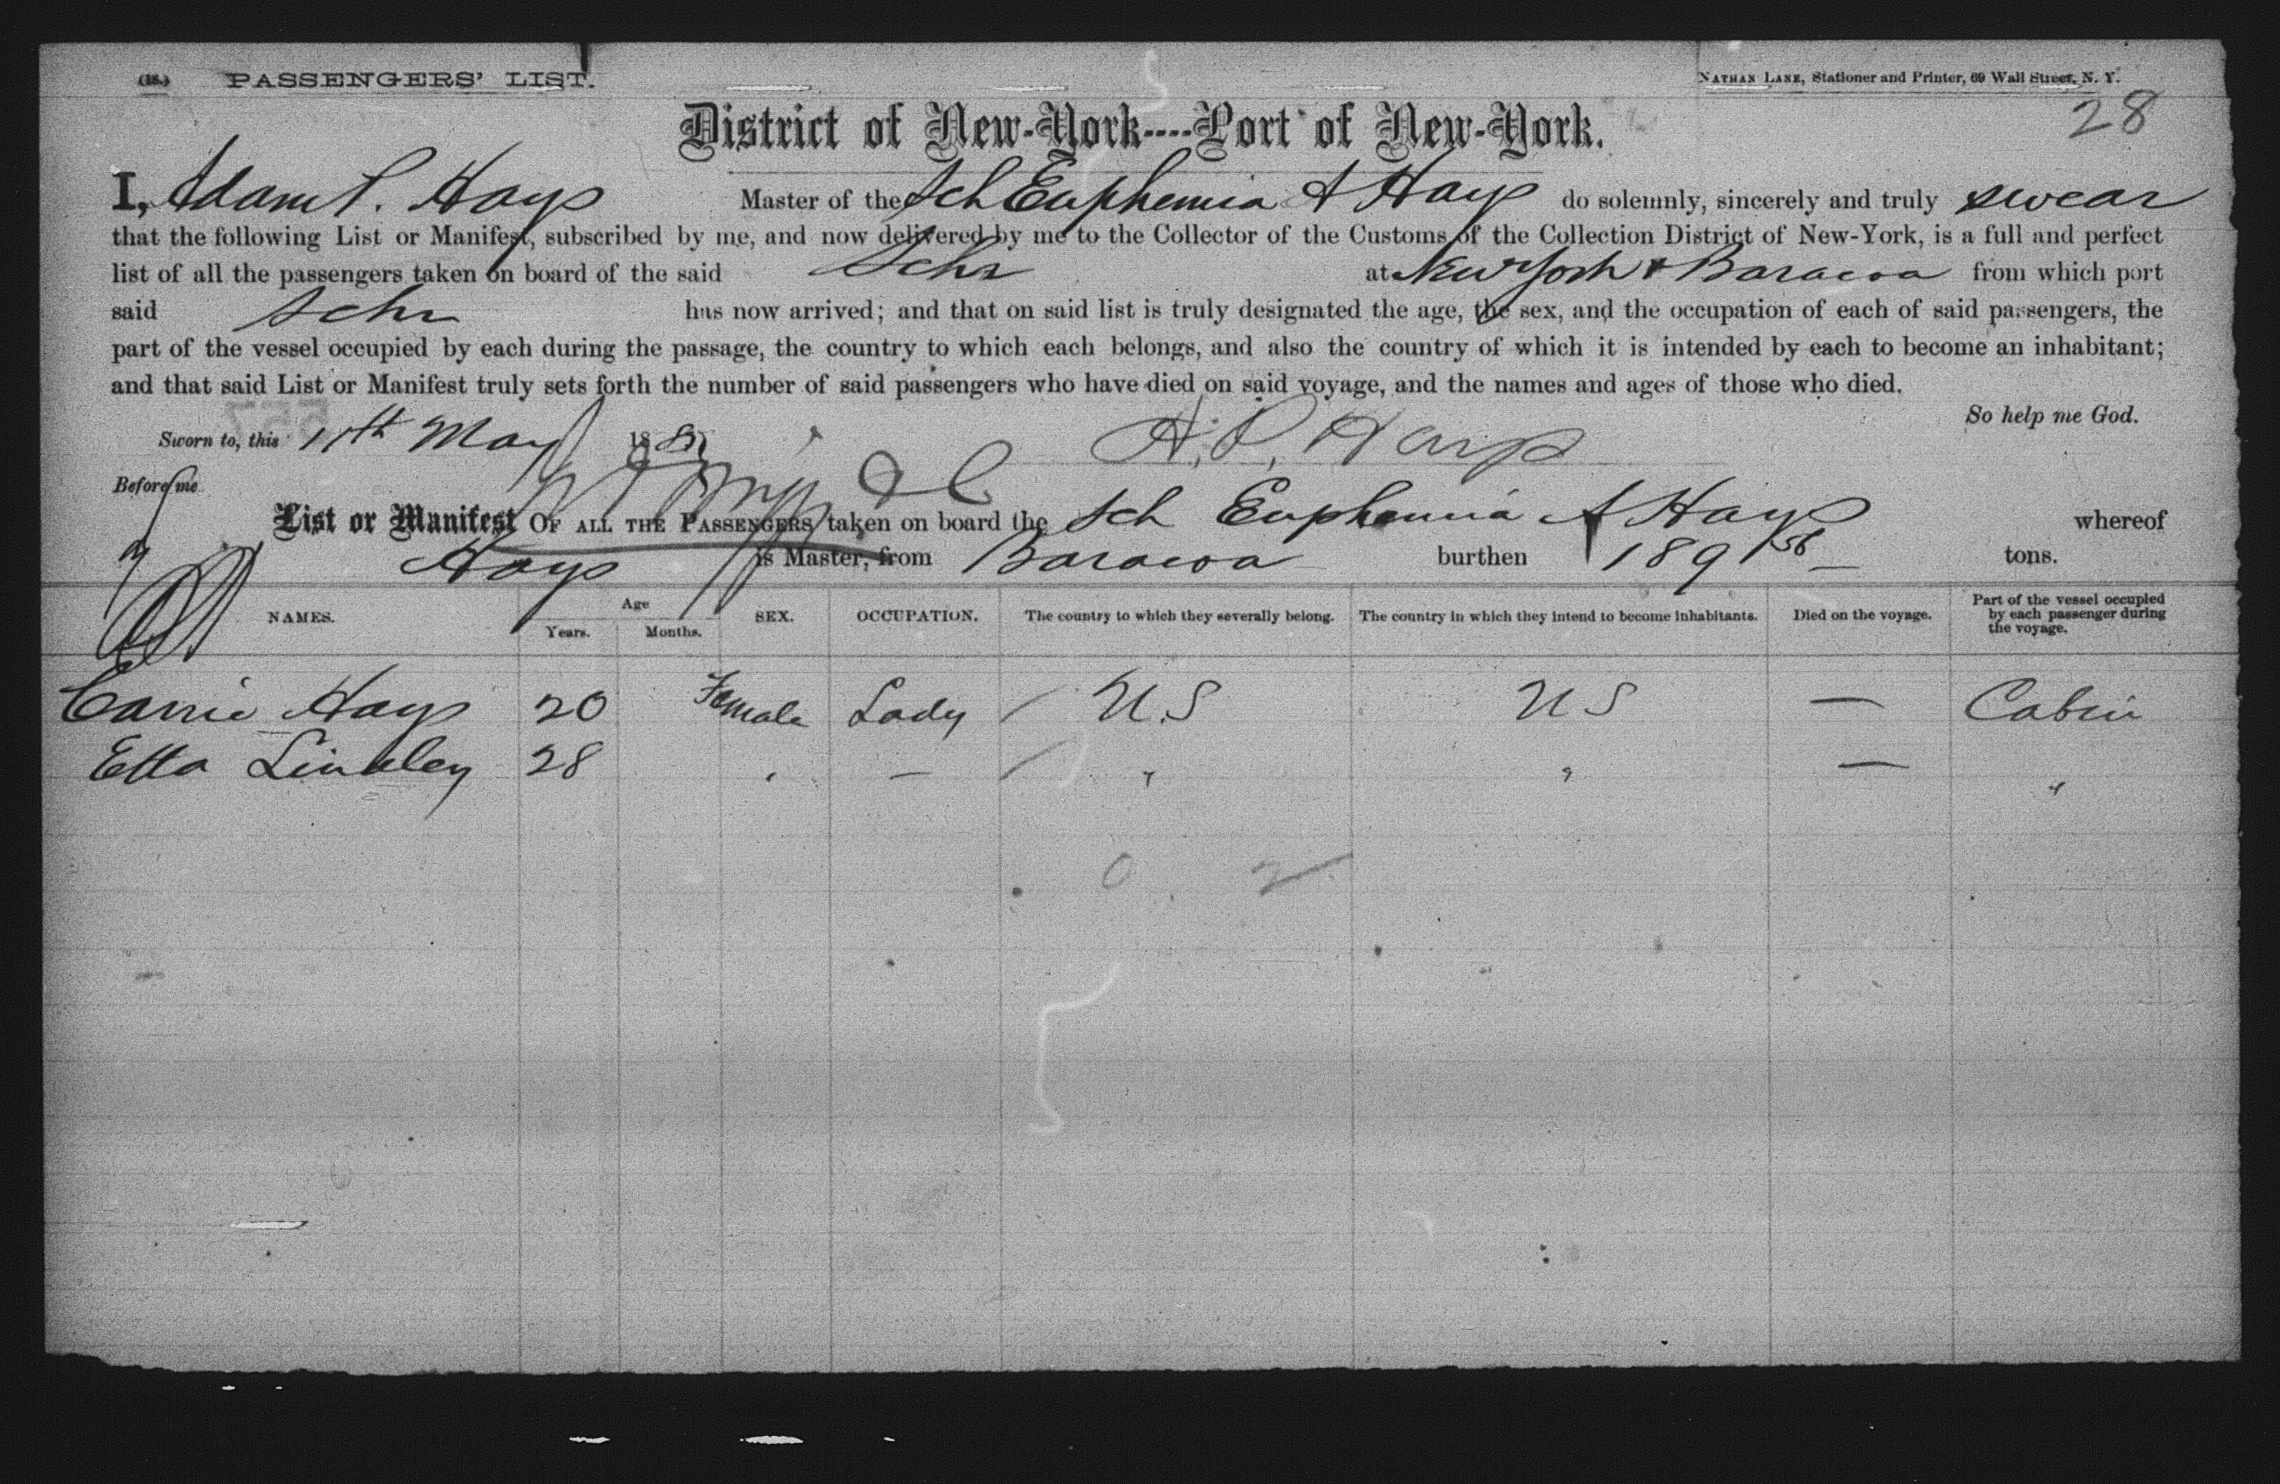 (18.) PASSENGERS' LIST. NATHAN LANE, Stationer and Printer, 69 Wall Street, N. Y.
28
District of New-York----Port of New-York.
I, Adam P. Hays Master of the Sch Euphemia A Hays do solemnly, sincerely and truly swear
that the following List or Manifest, subscribed by me, and now delivered by me to the Collector of the Customs of the Collection District of New-York, is a full and perfect
list of all the passengers taken on board of the said Schr at New York & Baracoa from which port
said Schr has now arrived; and that on said list is truly designated the age, the sex, and the occupation of each of said passengers, the
part of the vessel occupied by each during the passage, the country to which each belongs, and also the country of which it is intended by each to become an inhabitant;
and that said List or Manifest truly sets forth the number of said passengers who have died on said voyage, and the names and ages of those who died.
So help me God.
Sworn to, this 11th May 188 A. P. Hays
Before me
List or Manifest OF ALL THE PASSENGERS taken on board the Sch Euphemia A Hays whereof
Hays is Master, from Baracoa burthen 189 56 tons.
NAMES. Age Years. Months. SEX. OCCUPATION. The country to which they severally belong. The country in which they intend to become inhabitants. Died on the voyage. Part of the vessel occupied by each passenger during the voyage.
Carrie Hays 20 Female Lady / U.S U S — Cabin
Etta 28 " — / " " — "
0 2